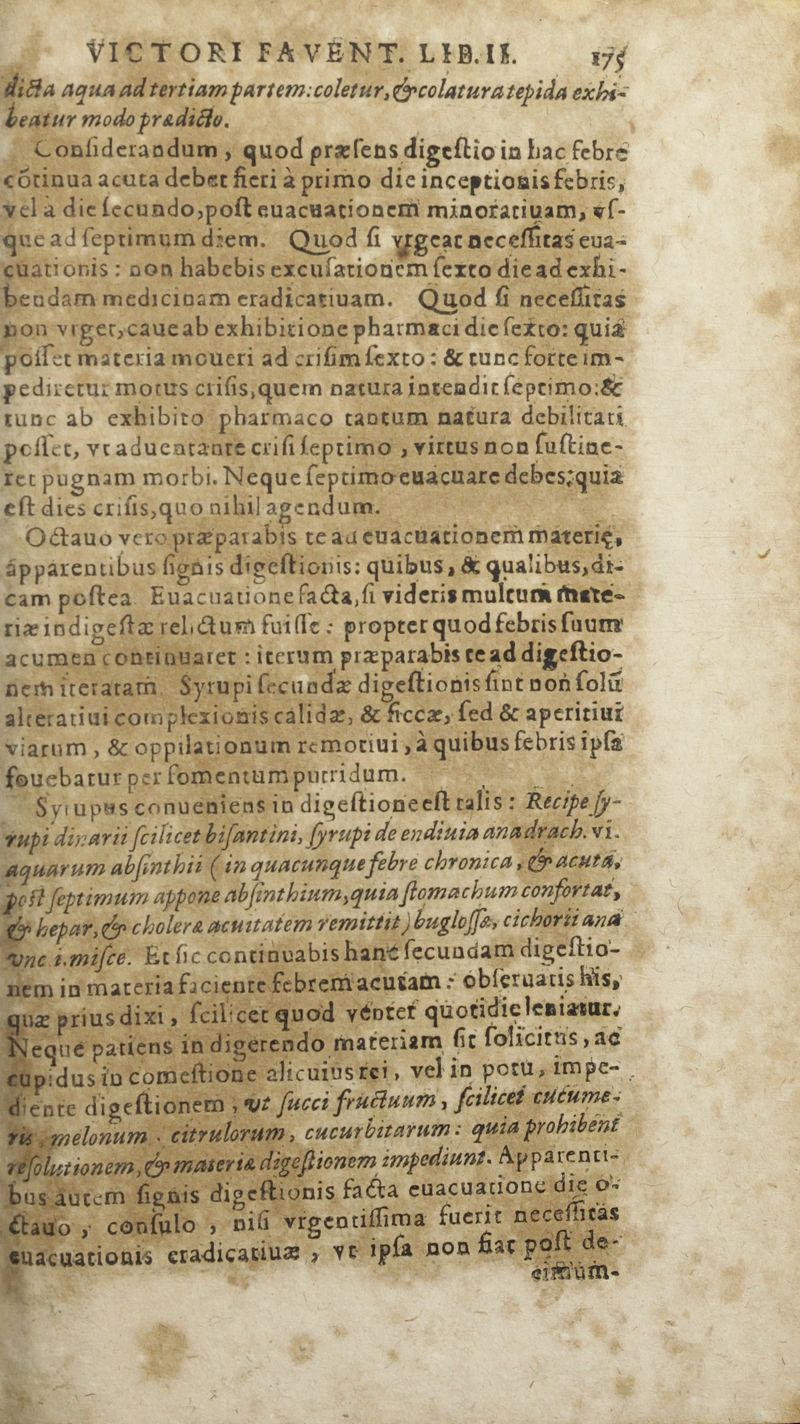 VICTORI FAVENT. LIB. II. 175
dicta aqua ad tertiam partem: coletur, & colatura tepida exhi-
beatur modo prædicto.
Cōnſiderandum, quod præſens digeſtio in hac febre
cōtinua acuta debet fieri à primo die inceptionis febris,
vel à die ſecundo, poſt euacuationem minoratiuam, vſ-
que ad ſeptimum diem. Quod ſi vrgeat neceſſitas eua-
cuationis: non habebis excuſationem ſexto die ad exhi-
bendam medicinam eradicatiuam. Quod ſi neceſſitas
non vrget, caue ab exhibitione pharmaci die ſexto: quia
poſſet materia moueri ad criſim ſexto: & tunc forte im-
pediretur motus criſis, quem natura intendit ſeptimo: &
tunc ab exhibito pharmaco tantum natura debilitari
poſſet, vt aduentante criſi ſeptimo, virtus non ſuſtine-
ret pugnam morbi. Neque ſeptimo euacuare debes; quia
eſt dies criſis, quo nihil agendum.
Octauo vero præparabis te ad euacuationem materię,
apparentibus ſignis digeſtionis: quibus, & qualibus, di-
cam poſtea. Euacuatione facta, ſi videris multum mate-
riæ indigeſtæ relictum fuiſſe: propter quod febris ſuum
acumen continuaret: iterum præparabis te ad digeſtio-
nem iteratam. Syrupi ſecundæ digeſtionis ſint non ſolū
alteratiui complexionis calidæ, & ſiccæ, ſed & aperitiui
viarum, & oppilationum remotiui, à quibus febris ipſa
fouebatur per fomentum putridum.
Syrupus conueniens in digeſtione eſt talis: Recipe ſy-
rupi dinarii ſcilicet biſantini, ſyrupi de endiuia ana drach. vi.
aquarum abſinthii (in quacunque febre chronica, & acuta,
poſt ſeptimum appone abſinthium, quia ſtomachum confortat,
& hepar, & choleræ acuitatem remittit) bugloſſæ, cichorii ana
vnc i. miſce. Et ſic continuabis hanc ſecundam digeſtio-
nem in materia faciente febrem acutam: obſeruatis his,
quæ prius dixi, ſcilicet quod venter quotidie leniatur.
Neque patiens in digerendo materiam ſit ſolicitus, ac
cupidus in comeſtione alicuius rei, vel in potu, impe-
diente digeſtionem, vt ſucci fructuum, ſcilicet cucume-
rū, melonum. citrulorum, cucurbitarum: quia prohibent
reſolutionem, & materiæ digeſtionem impediunt. Apparenti-
bus autem ſignis digeſtionis facta euacuatione die o-
ctauo, conſulo, niſi vrgentiſſima fuerit neceſſitas
euacuationis eradicatiuæ, vt ipſa non fiat poſt de-
cimum-